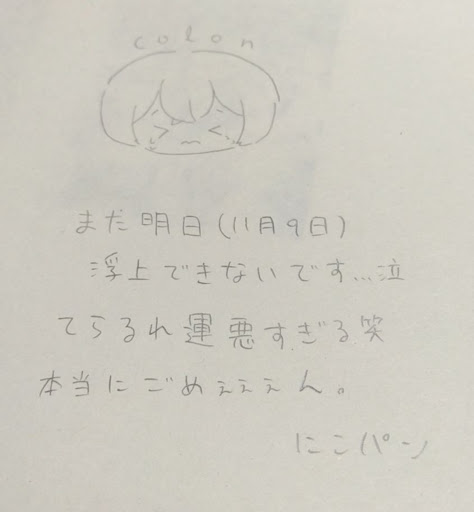 colon
また明日(11月9日)
浮上できないです...泣
てらるれ運悪すぎる笑
本当にごめぇぇぇん。
にこパン